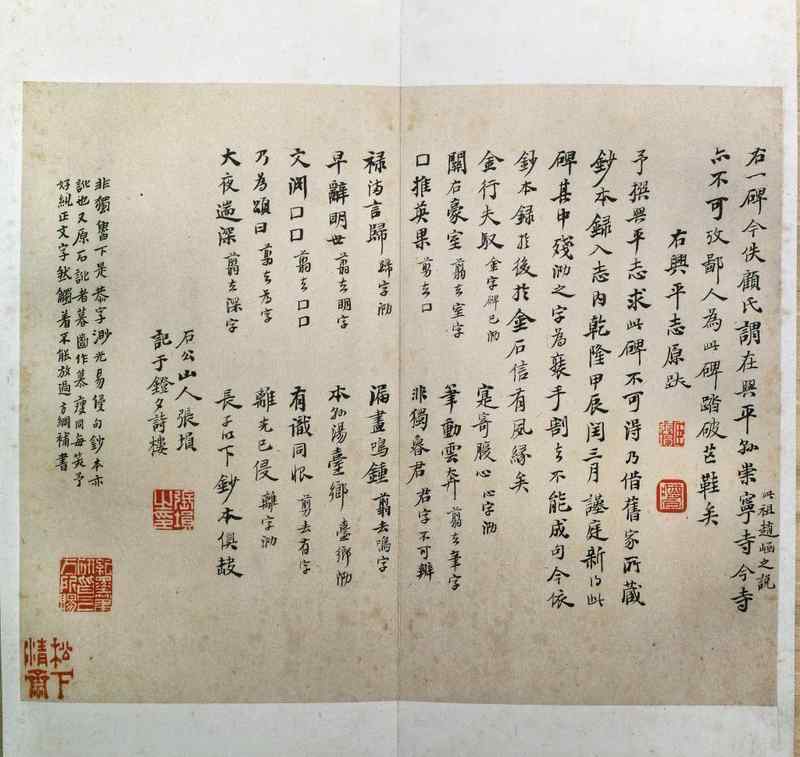 右一碑今佚顧氏謂在興平縣崇寧寺今寺
此祖趙崡之說
亦不可攷鄙人為此碑踏破芒鞋矣
右興平志原跋
予撰興平志求此碑不可得乃借舊家所藏
鈔本錄入志內乾隆甲辰閏三月謹庭新得此
碑其中殘泐之字為裝手割去不能成句今依
鈔本錄於後於金石信有風緣矣
金行失馭 金字碑已泐 寔寄腹心 心字泐
關右豪室 翦去室字 筆動雲奔 翦去筆字
口推英果 翦去口 非獨眷君 君字不可辨
祿滿言歸 歸字泐 漏盡鳴鍾 翦去鳴字
早辭明世 翦去明字 本縣湯臺鄉 臺鄉泐
文润口口 翦去口口 有識同悢 翦去有字
乃為頌曰 翦去為字 離光已侵 離字泐
大夜遄深 翦去深字 長子以下鈔本俱缺
石公山人張塤
記于鐙夕詩樓
非獨眷下是恭字渺光易侵句鈔本亦
訛也又原石訛者墓啚作墓瘞同每笑予
好糾正文字然觸着不能放過方綱補書
張塤之印
松下清齋